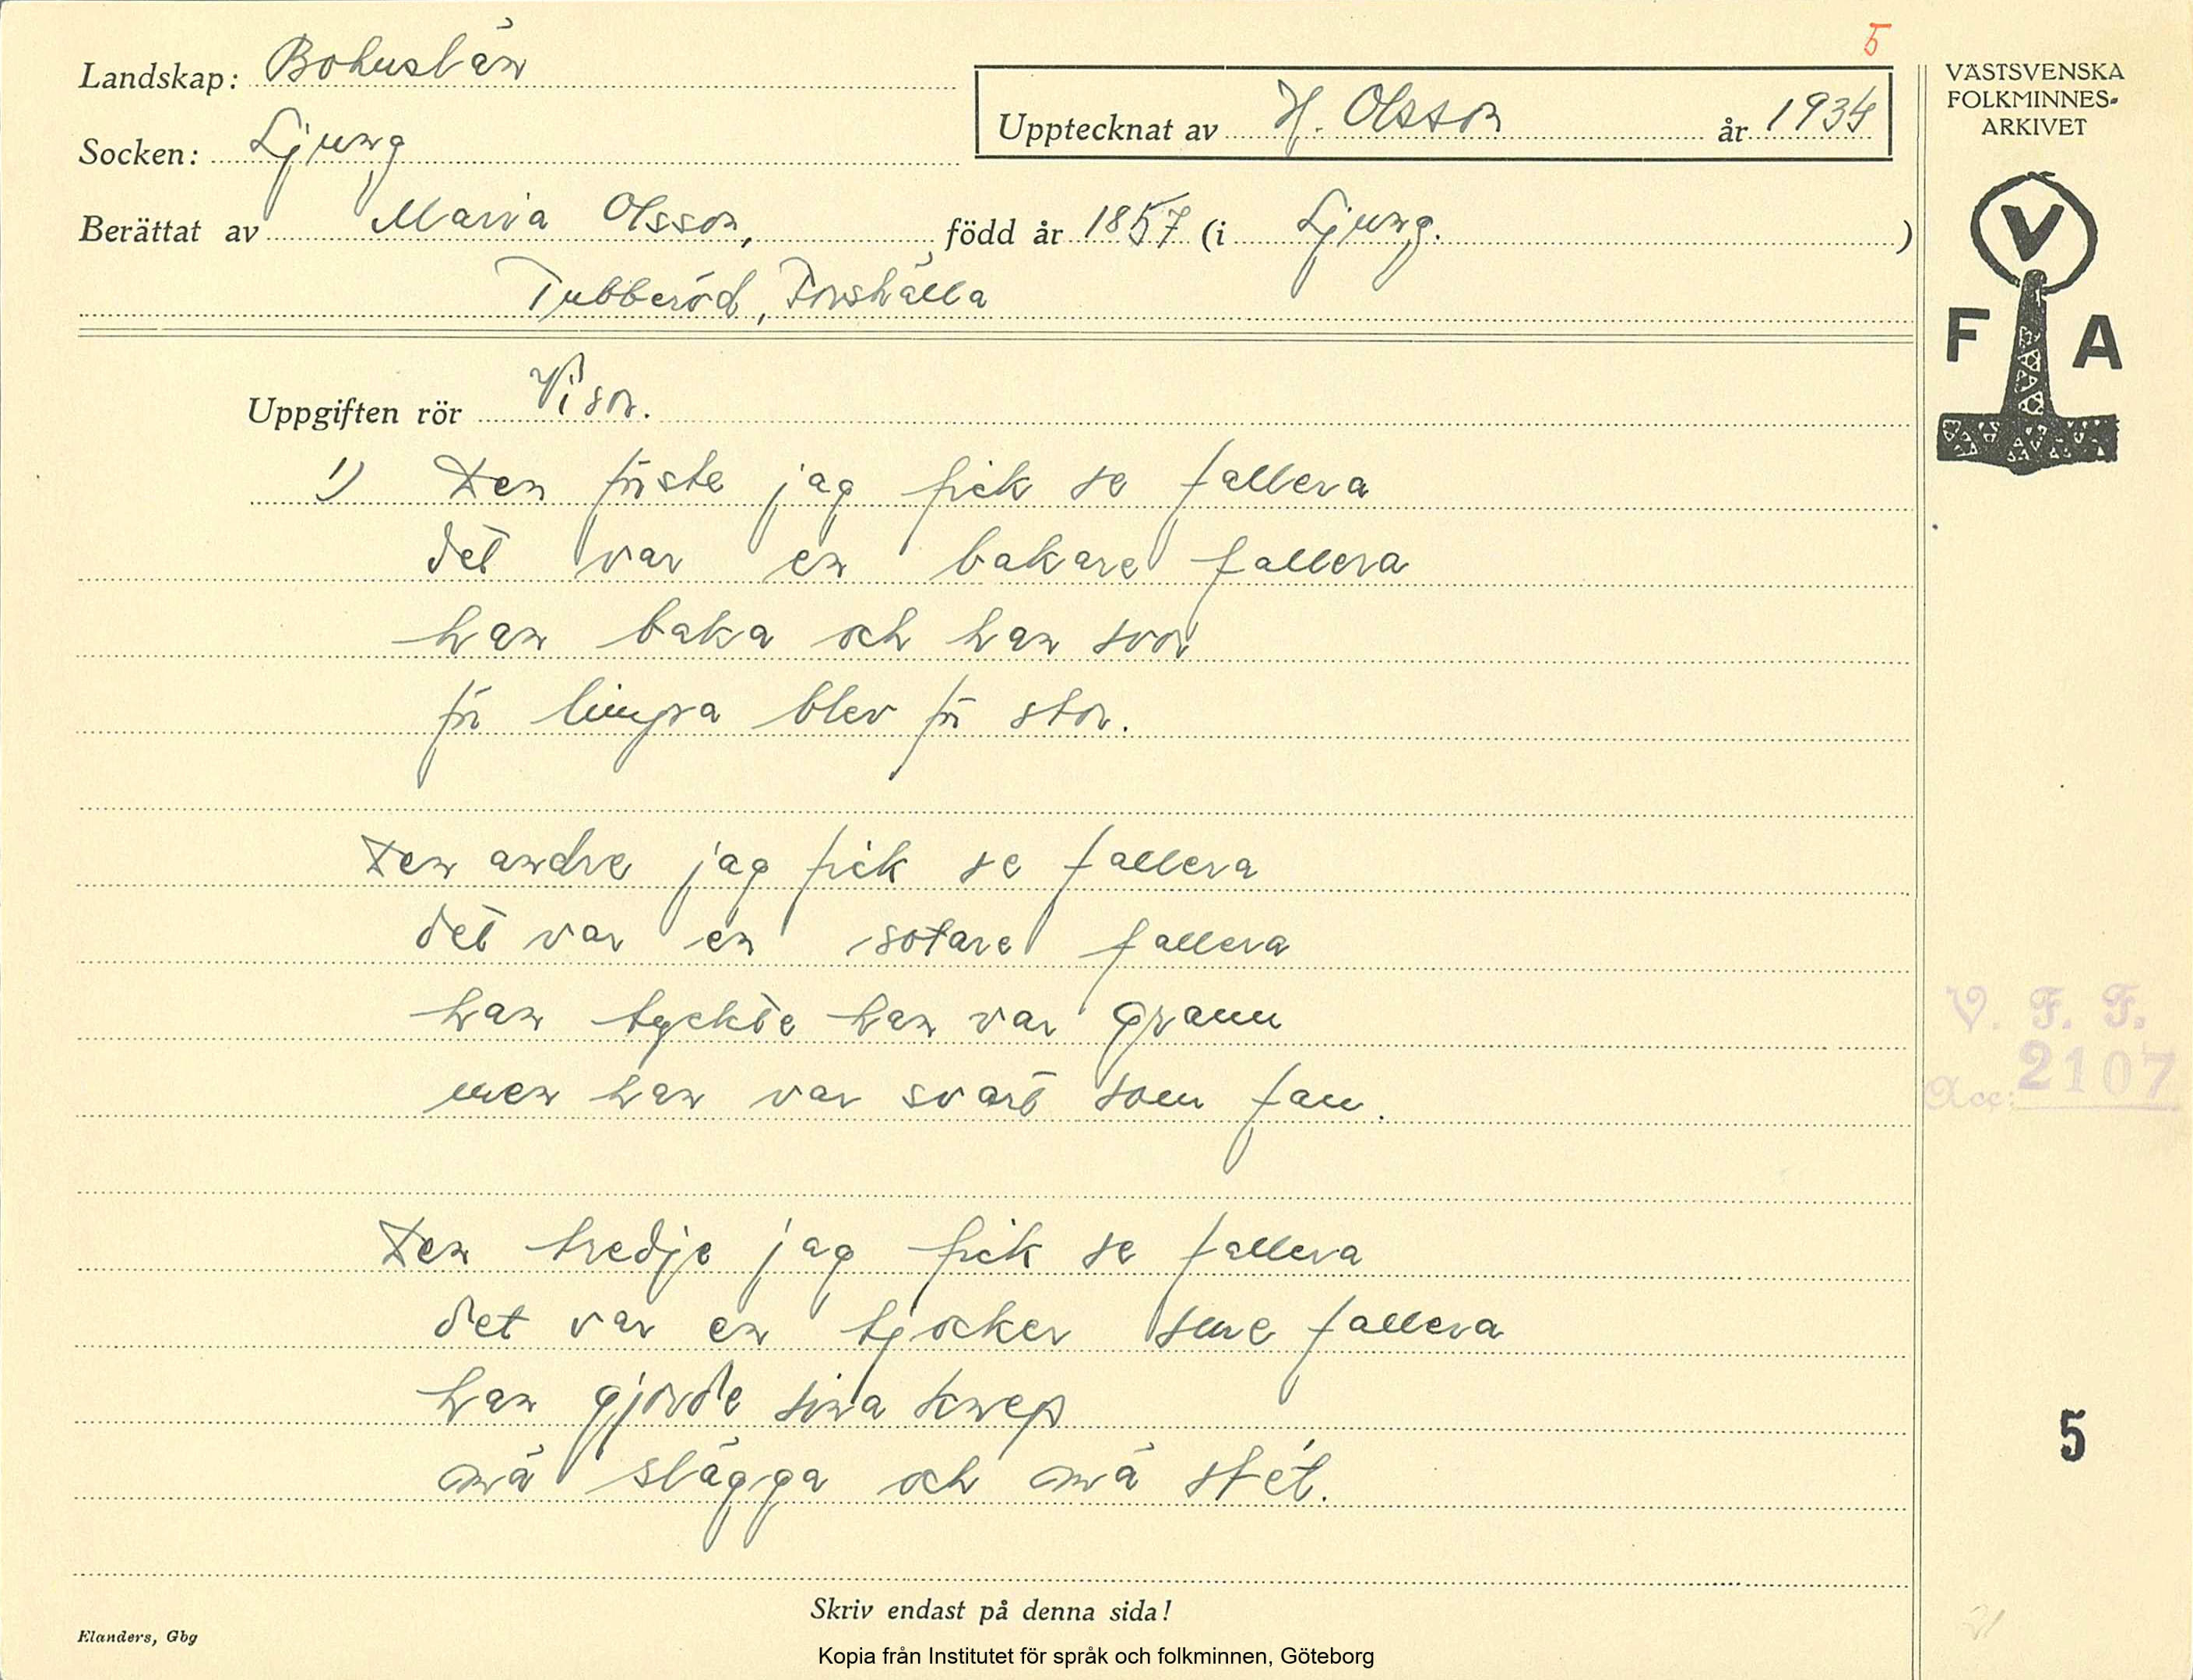 5
Landskap: Bohuslän
Upptecknat av H. Olsson år 1934
VÄSTSVENSKA
FOLKMINNES-
ARKIVET
Socken: Ljung
Berättat av Maria Olsson, född år 1857 (i Ljung.)
Tubberöd, Forshälla
V
F A
Uppgiften rör Visor.
1) Den förste jag fick se fallera
det var en bakare fallera
han baka och han svor
för limpra blev för stor.
Den andre jag fick se fallera
det var en sotare fallera
han tyckte han var grann
men han var svart som fan.
V. F. F.
Acc: 2107
Den tredje jag fick se fallera
det var en tjocker sme fallera
han gjorde sina knep
mä slägga och mä stét.
5
Skriv endast på denna sida!
Elanders, Gbg
Kopia från Institutet för språk och folkminnen, Göteborg